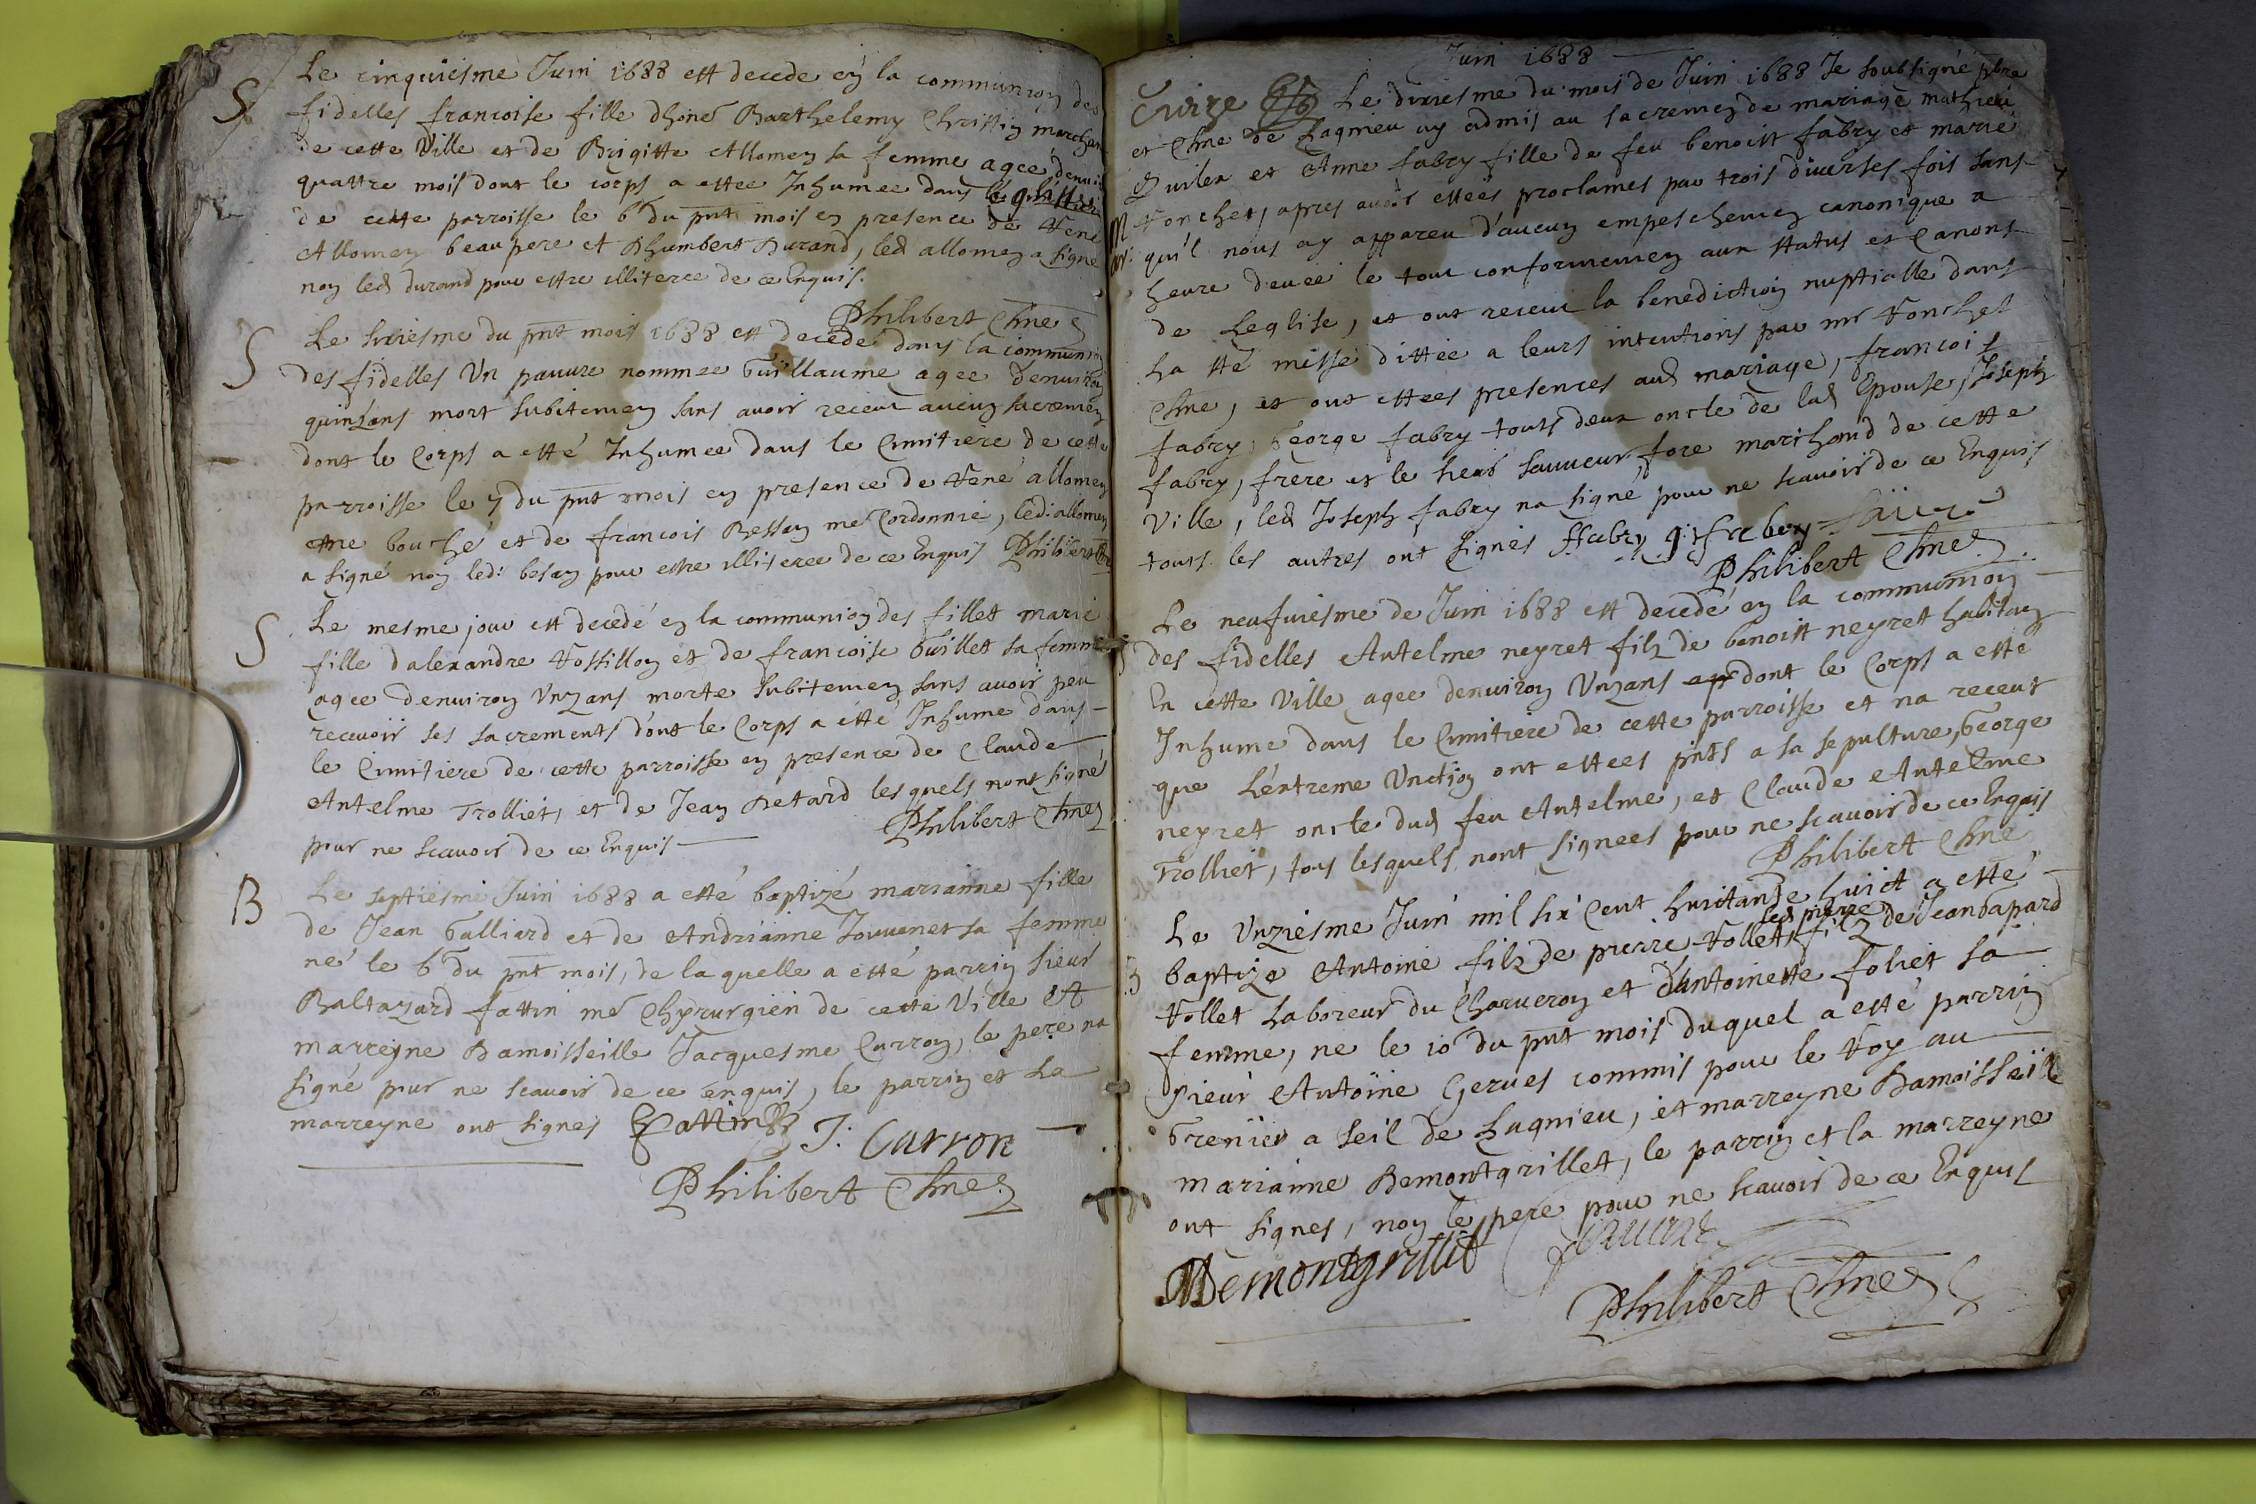 S
Le cinquiesme Juin 1688 est decede en la communion des
fidelles francoise fille dhoné Barthelemy Christin marchan
de cette Ville et de Brigitte Allomen sa femme agee denvi
quattre mois dont le corps a ettee Inhumee dans
de cette parroisse le 6 du pnt mois en presence de René
Allomen beaupere et Dhumbert Durand, led allomen a signé
non led durand pour estre illiteree de ce Enquis.
Philibert Chne
S
Le sixiesme du pnt mois 1688 est decede dans la communion
des fidelles Un pauvre nommee Guillaume agee denviron
quinzans mort subitemen sans avoir receut aucun sacremen
dont le Corps a etté Inhumee dans le Cimitiere de cette
parroisse le 7 du pnt mois en presence de René allomen
me bouché et de francois Bessan me Cordonnié, led: allomen
a signé non led: besan pour estre illiteree de ce Enquis Philibert Chne
S
Le mesme jour est decedé en la communion des fillet marie
fille dalexandre Rossillon et de francoise Guillet sa femme
agee denviron Unzans morte subitemen sans avoir peu
recevoir ses sacrements dont le Corps a étté Inhume dans
le Cimitiere de cette parroisse en presence de Claude
Antelme Trolliet, et de Jean Retard lesquels nont signé
pour ne scavoir de ce Enquis
Philibert Chne
B
Le septiesme Juin 1688 a etté baptizé marianne fille
de Jean Galliard et de Andrianne Jouvanet sa femme
né le 6 du pnt mois, de la quelle a etté parrin sieur
Baltazard fattin me Chyrurgien de cette Ville et
marreyne Damoisseille Jacquesme Carron, le pere na
signé pour ne scavoir de ce enquis, le parrin et la
marreyne ont signes Fattin J: Carron
Philibert Chne
Juin 1688
Le dixiesme du mois de Juin 1688 Je soubsigné pbre
et Chne de Lagnieu ay admis au sacremen de mariage mathieu
Quilen et Anne fabry fille de feu benoist fabry et marie
Ronchet, apres avoir ettees proclames par trois diverses fois sans
M
ar:
qu'il nous ay appareu d'aucun empeschemen canonique a
heure deuee le tout conformemen aux status et Canons
de Leglise, et ont receut la benediction nuptialle dans
La ste messe dittee a leurs intentions par mr Ronchet
Chne, et ont ettees presences aud mariage, francois
fabry, George fabry touts deux oncle de lad Epouse, Joseph
fabry, frere et le sieur sauveur fore marchand de cette
Ville, led Joseph fabry na signé pour ne scavoir de ce Enquis
touts les autres ont signés ffabry g: fabry
Philibert Chne
Le neufviesme de Juin 1688 est decedé en la communion
des fidelles Antelme neyret filz de benoist neyret habitan
En cette Ville agee denviron Unzans dont le Corps a esté
Inhume dans le Cimitiere de cette parroisse et na receut
que L'éxtreme Unction ont ettees pnts a sa sepulture, George
neyret oncle dud feu Antelme, et Claude Antelme
Trolliet, tous lesquels nont signees pour ne scavoir de ce Enquis
Philibert Chne
B
Le Unziesme Juin mil six Cent huictante huict a esté
led pierre
baptize Antoine filz de pierre Rollet filz de Jean Gapard
Rollet Laboreur du Charveron et d'Antoinette foliet sa
femme, ne le 10 du pnt mois duquel a esté parrin
sieur Antoine Gerves commis pour le Roy au
Grenier a seil de Lagnieu, et marreyne Damoisseille
marianne Demontgrillet, le parrin et la marreyne
ont signes, non le pere pour ne scavoir de ce Enquis
MDemontgrillet
Philibert Chne